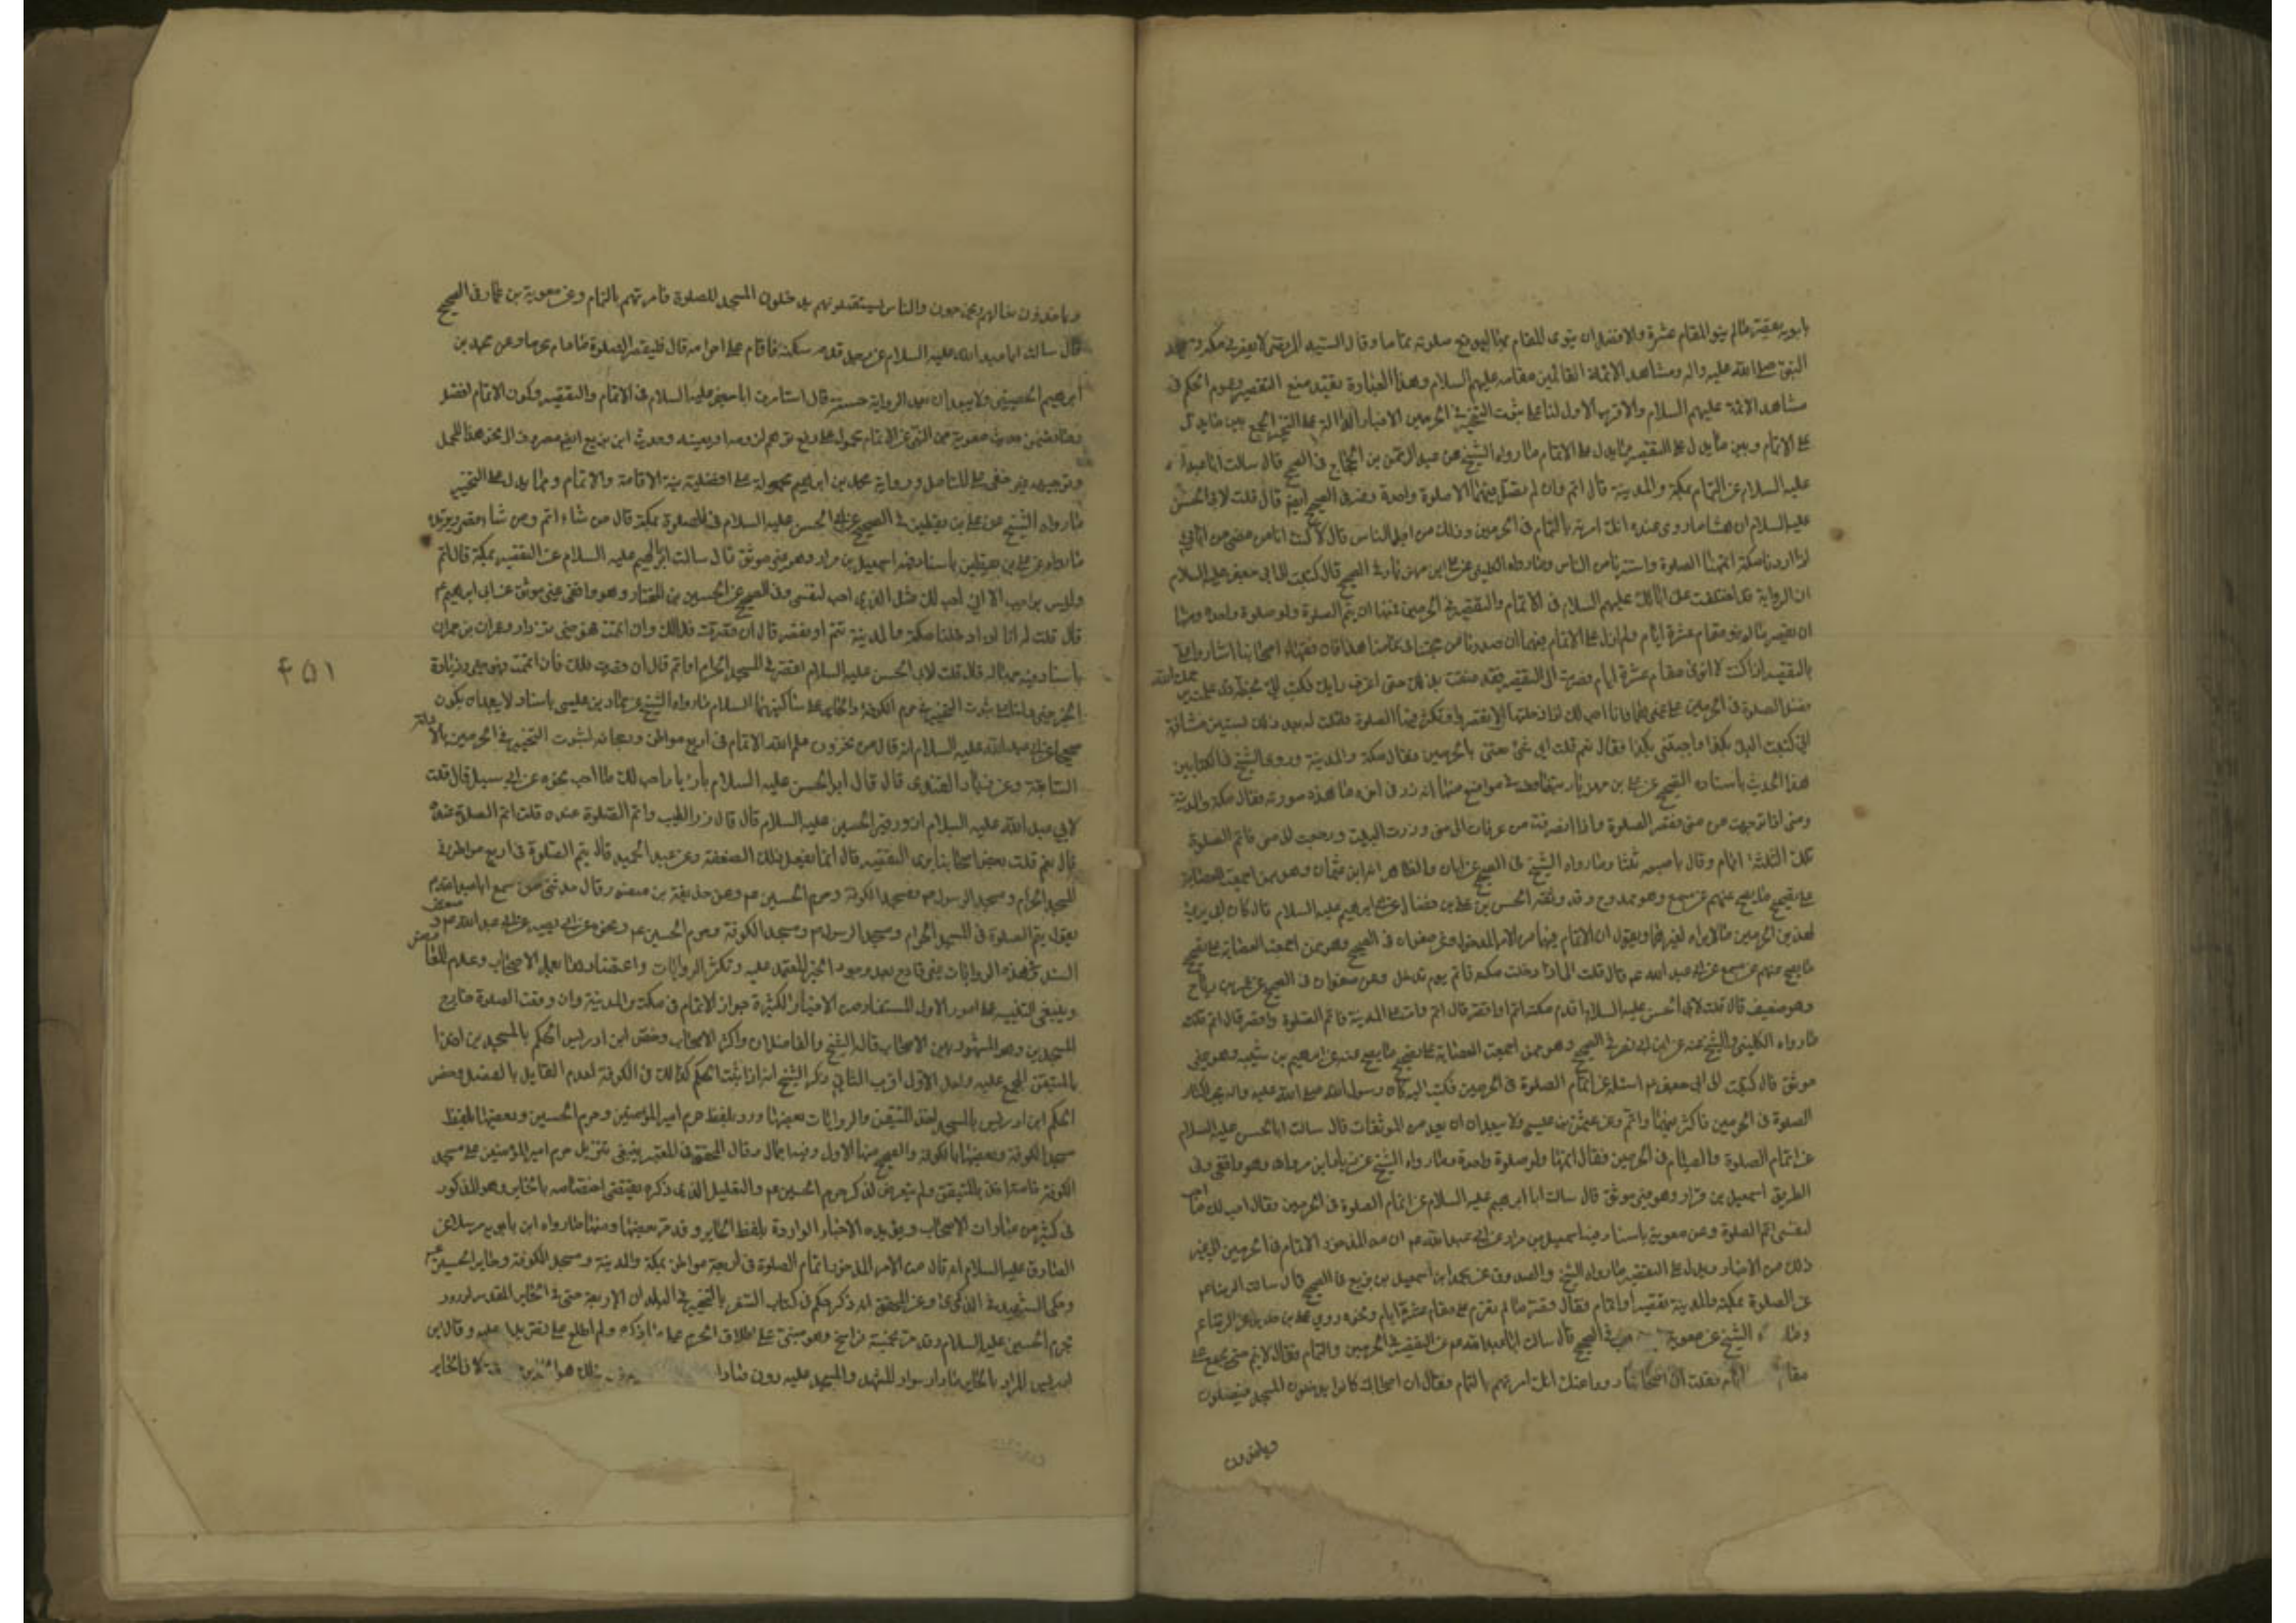 بابويه يقصر ما لم ينو المقام عشرة والافضل ان ينوى المقام بها ليوقع صلوته تماما وقال السيد المرتضى لا يقصر في مكة ومسجد
النبي صلى الله عليه واله ومشاهد الائمة القائمين مقامه عليهم السلام وهذه العبارة تفيد منع التقصير وعموم الحكم في
مشاهد الائمة عليهم السلام والاقرب الاول لنا على ثبوت التخيير في الحرمين الاخبار الدالة على التخيير الجمع بين ما يدل
على الاتمام وبين ما يدل على التقصير فما يدل على الاتمام ما رواه الشيخ عن عبد الرحمن بن الحجاج في الصحيح قال سالت ابا عبد الله
عليه السلام عن التمام بمكة والمدينة قال اتم وان لم تصل فيهما الا صلوة واحدة وعنه في الصحيح ايضا قال قلت لابي الحسن
عليه السلام ان هشاما روى عنك انك امرته بالتمام في الحرمين وذلك من اجل الناس قال لا كنت انا ومن مضى من ابائي
اذا وردنا مكة اتممنا الصلوة واستترنا من الناس وما رواه الكليني عن علي بن مهزيار في الصحيح قال كتبت الى ابي جعفر عليه السلام
ان الرواية قد اختلفت عن ابائك عليهم السلام في الاتمام والتقصير في الحرمين فمنها ان يتم الصلوة ولو صلوة واحدة ومنها
ان يقصر ما لم ينو مقام عشرة ايام ولم ازل على الاتمام فيهما الى ان صدرنا من حجنا في عامنا هذا فان فقهاء اصحابنا اشاروا على
بالتقصير اذا كنت لا انوى مقام عشرة ايام فصرت الى التقصير وقد ضقت بذلك حتى اعرف رايك فكتب الي بخطه قد علمت يرحمك الله
فضل الصلوة في الحرمين على غيرهما فانا احب لك اذا دخلتهما ان لا تقصر وتكثر فيهما الصلوة فقلت له بعد ذلك بسنتين مشافهة
اني كتبت اليك بكذا واجبتني بكذا فقال نعم قلت اي شئ تعنى بالحرمين فقال مكة والمدينة وروى الشيخ في الكتابين
هذا الحديث باسناده الصحيح عن علي بن مهزيار بتفاوت في مواضع منها انه زاد في اخره ما هذه صورته فقال مكة والمدينة
ومتى اذا توجهت من منى فقصر الصلوة واذا انصرفت من عرفات الى منى وزرت البيت ورجعت الى منى فاتم الصلوة
تلك الثلثة ايام وقال باصبعه ثلثا وما رواه الشيخ في الصحيح عن ابان والظاهر انه ابن عثمان وهو ممن اجمعت العصابة
على تصحيح ما يصح عنهم عن مسمع وهو ممدوح وقد وثقه الحسن بن علي بن فضال عن ابي ابراهيم عليه السلام قال كان ابي يرى
لهذين الحرمين ما لا يراه لغيرهما ويقول ان الاتمام فيهما من الامر المذخور وعن صفوان في الصحيح وهو ممن اجمعت العصابة على تصحيح
ما يصح عنهم عن مسمع عن ابي عبد الله عم قال قال لي اذا دخلت مكة فاتم يوم تدخل وعن صفوان في الصحيح عن عمر بن رياح
وهو ضعيف قال قلت لابي الحسن عليه السلام اقدم مكة اتم او اقصر قال اتم قلت وامر على المدينة فاتم الصلوة او اقصر قال اتم قلت
ما رواه الكليني والشيخ عنه عن ابن ابي نصر في الصحيح وهو ممن اجمعت العصابة على تصحيح ما يصح عنه عن ابراهيم بن شيبة وهو غير
موثق قال كتبت الى ابي جعفر عم اسئله عن اتمام الصلوة في الحرمين فكتب الي كان رسول الله صلى الله عليه واله يحب اكثار
الصلوة في الحرمين فاكثر فيهما واتم وعن عثمان بن عيسى ولا يبعد ان يعد من الموثقات قال سالت ابا الحسن عليه السلام
عن اتمام الصلوة والصيام في الحرمين فقال اتمها ولو صلوة واحدة وما رواه الشيخ عن زياد بن مروان وهو واقفي وفي
الطريق اسمعيل بن مرار وهو غير موثق قال سالت ابا ابراهيم عليه السلام عن اتمام الصلوة في الحرمين فقال احب لك ما احب
لنفسي اتم الصلوة وعن معوية باسناد فيه اسمعيل بن مرار عن ابي عبد الله عم ان من المذخور الاتمام في الحرمين الى غير
ذلك من الاخبار ويدل على التقصير ما رواه الشيخ والصدوق عن محمد بن اسمعيل بن بزيع في الصحيح قال سالت الرضا عم
عن الصلوة بمكة والمدينة تقصير او اتمام فقال قصر ما لم تعزم على مقام عشرة ايام ونحوه روى علي بن حديد عن الرضا عم
الشيخ عن معوية في الصحيح قال سالت ابا عبد الله عم عن التقصير في الحرمين والتمام فقال لا تتم حتى تجمع على
مقام ايام فقلت ان اصحابنا رووا عنك انك امرتهم بالتمام فقال ان اصحابك كانوا يدخلون المسجد فيصلون
وياخذون
وياخذون نعالهم ويخرجون والناس يستقبلونهم يدخلون المسجد للصلوة فامرتهم بالتمام وعن معوية بن عمار في الصحيح
قال سالت ابا عبد الله عليه السلام عن رجل قدم مكة فاقام على احرامه قال فليقصر الصلوة ما دام محرما وعن محمد بن
ابرهيم الحضيني ولا يبعد ان يعد الرواية حسنة قال استامرت ابا جعفر عليه السلام في الاتمام والتقصير وكون الاتمام افضل
معوية من النهي عن الاتمام محمول على وحديث ابن بزيع ايضا مصروف الى نحو هذا المحمل
وتوجيهه غير خفي على المتامل ورواية محمد بن ابراهيم محمولة على افضلية نية الاقامة والاتمام ومما يدل على التخيير
ما رواه الشيخ عن علي بن يقطين في الصحيح عن ابي الحسن عليه السلام في الصلوة بمكة قال من شاء اتم ومن شاء قصر ويؤيده
ما رواه عن علي بن يقطين باسناد فيه اسمعيل بن مرار وهو غير موثق قال سالت ابا ابراهيم عليه السلام عن التقصير بمكة قال اتم
وليس بواجب الا اني احب لك مثل الذي احب لنفسي وفي الصحيح عن الحسين بن المختار وهو واقفي غير موثق عن ابي ابراهيم عم
قال قلت له انا اذا دخلنا مكة والمدينة نتم او نقصر قال ان قصرت فذاك وان اتممت فهو خير تزداد وعن عمران بن حمران
باسناد فيه جهالة قال قلت لابي الحسن عليه السلام اقصر في المسجد الحرام او اتم قال ان قصرت فلك وان اتممت فهو خير وزيادة
الخير خير ولنا على ثبوت التخيير في حرم الكوفة والحاير على ساكنهما السلام ما رواه الشيخ عن حماد بن عيسى باسناد لا يبعد ان يكون
صحيحا عن ابي عبد الله عليه السلام انه قال من مخزون علم الله الاتمام في اربع مواطن لثبوت التخيير في الحرمين بالادلة
السابقة وعن زياد القندي قال قال ابو الحسن عليه السلام يا زياد احب لك ما احب نحوه عن ابي شبل قال قلت
لابي عبد الله عليه السلام ازور قبر الحسين عليه السلام قال قال زر الطيب واتم الصلوة عنده قلت اتم الصلوة عنده
قال نعم قلت بعض اصحابنا يرى التقصير قال انما يفعل ذلك الضعفة وعن عبد الحميد قال يتم الصلوة في اربع مواطن في
المسجد الحرام ومسجد الرسول ص ومسجد الكوفة وحرم الحسين عم وعن حذيفة بن منصور قال حدثني من سمع ابا عبد الله عم
يقول يتم الصلوة في المسجد الحرام ومسجد الرسول ص ومسجد الكوفة وحرم الحسين عم ونحوه عن ابي بصير عن ابي عبد الله عم وضعف
السند في هذه الروايات غير قادح بعد وجود الخبر المعتمد عليه وتكثر الروايات واعتضادها بعمل الاصحاب وعدم المعارض
وينبغي التنبيه على امور الاول المستفاد من الاخبار الكثيرة جواز الاتمام في مكة والمدينة وان وقعت الصلوة خارج
المسجدين وهو المشهور بين الاصحاب قاله الشيخ والفاضلان واكثر الاصحاب وخص ابن ادريس الحكم بالمسجدين اخذا
بالمتيقن المجمع عليه ولعل الاول اقرب الثاني ذكر الشيخ انه اذا ثبت الحكم كذلك في الكوفة لعدم القايل بالفصل وخص
الحكم ابن ادريس بالمسجد اخذا بالمتيقن والروايات بعضها ورد بلفظ حرم امير المؤمنين وحرم الحسين وبعضها بلفظ
مسجد الكوفة وبعضها بالكوفة والصحيح منها الاول وفيه اجمال وقال المحقق في المعتبر ينبغي تنزيل حرم امير المؤمنين على مسجد
الكوفة خاصة اخذا بالمتيقن ولم يتعرض لذكر حرم الحسين عم والتعليل الذي ذكره يقتضي اختصاصه بالحاير وهو المذكور
في كثير من عبارات الاصحاب ويؤيده الاخبار الواردة بلفظ الحاير وقد مر بعضها ومنها ما رواه ابن بابويه مرسلا عن
الصادق عليه السلام انه قال من الامر المذخور اتمام الصلوة في اربعة مواطن بمكة والمدينة ومسجد الكوفة وحاير الحسين عم
وحكى الشهيد في الذكرى عن المحقق انه ذكر حكم في كتاب السفر بالتخيير في البلدان الاربعة حتى في الحاير المقدس لورود
بحرم الحسين عليه السلام وقدر بخمسة فراسخ وهو مبني على اطلاق الحرم على ولم اطلع على وقال ابن
ادريس المراد بالحاير ما دار سور المشهد والمسجد عليه دون ما دار